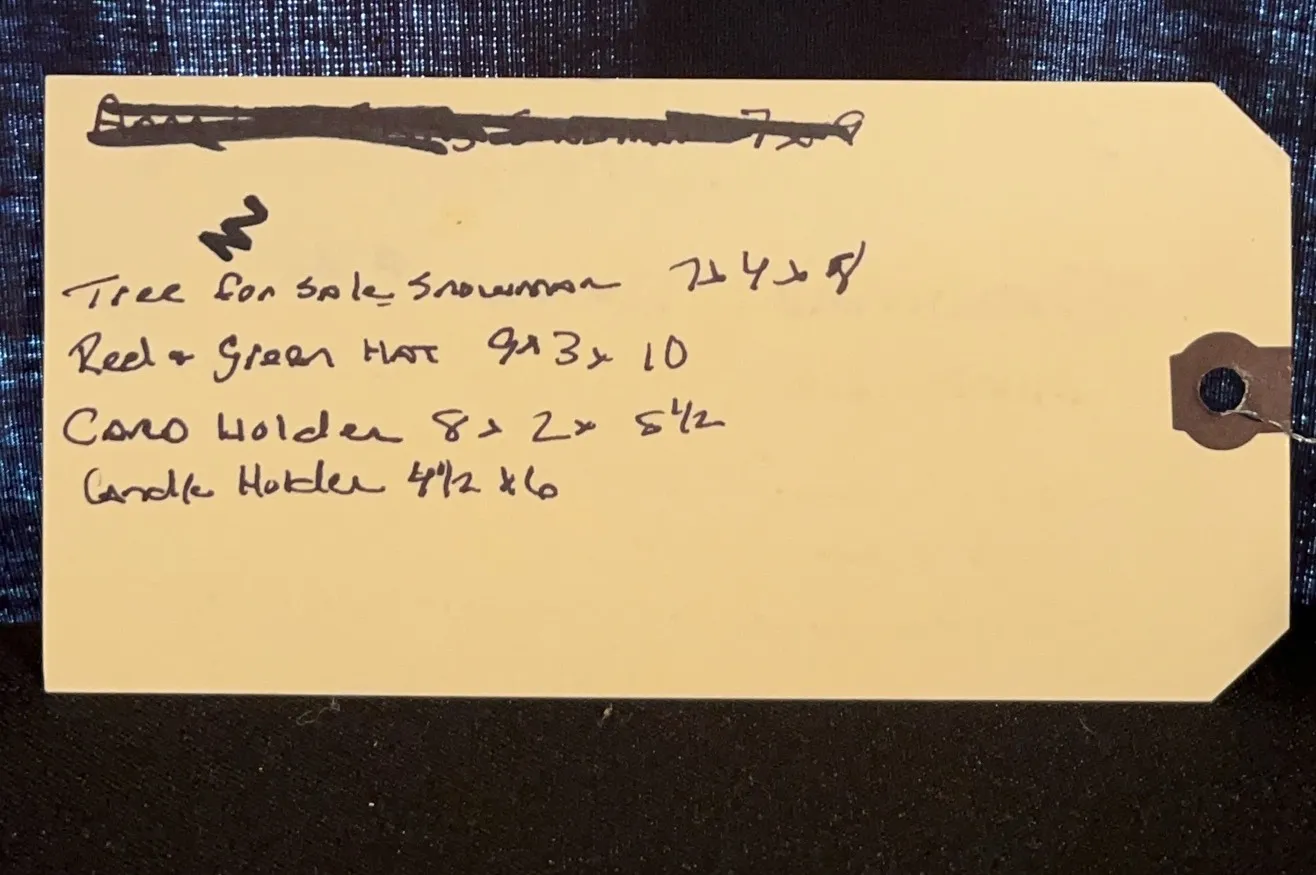 Snowman 7x9
Tree for sale Snowman 7x4x8
Red & Green Hat 9x3x10
Card Holder 8x2x5 1/2
Candle Holder 4 1/2 x6